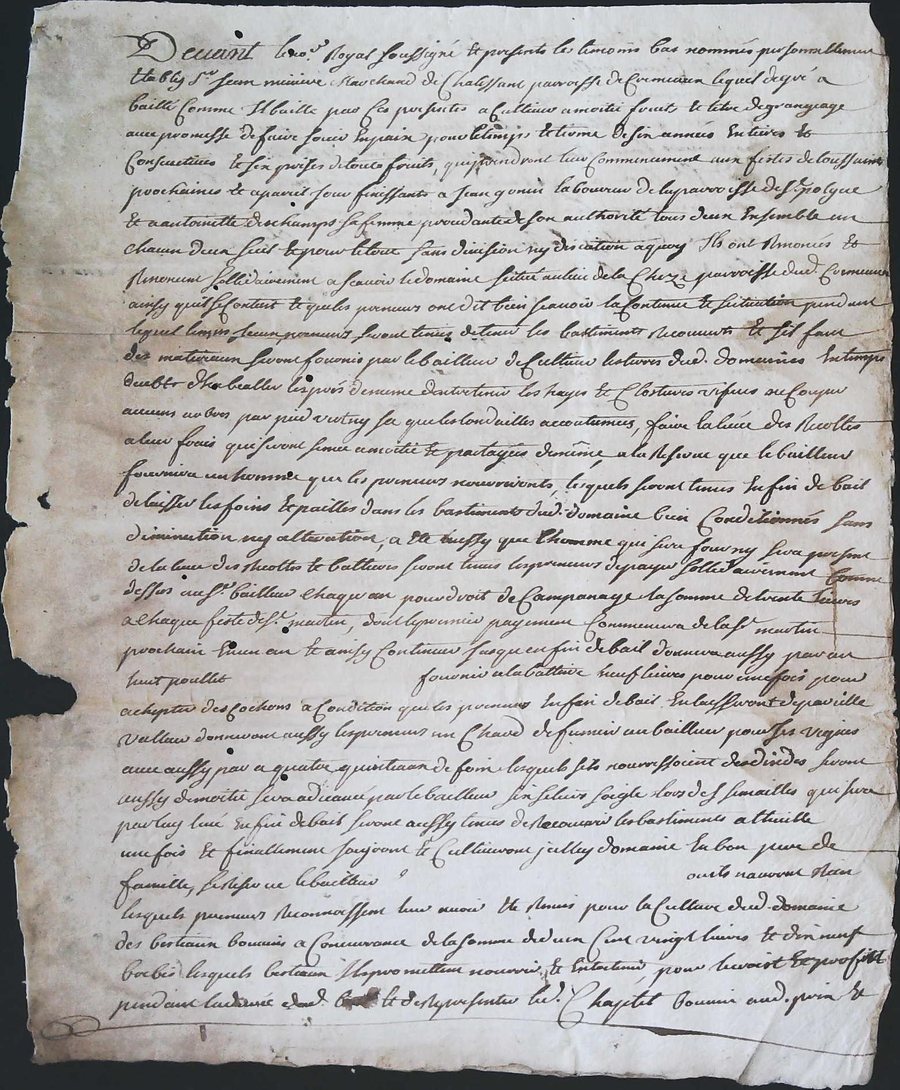 Devant le no.re Royal soussigné et presents les temoins bas nommés personnellement
etably s.r jean miviere Marchand de Chalissant parroisse de lequel de gré a
baillé Comme Il baille par Ces presentes a Culture a moitié fruit et titre de grangeage
avec promesse de faire jouir En paix pour letemps et terme de six années Entieres et
Consecutives et six prises de touts fruits, qui prendront leur Commencement aux festes de toussaint
prochaines et apareil jour finissants a jean gonin laboureur de la parroisse de s.t polgue
et a antoinette deschamps sa femme procedante de son authorité tous deux Ensemble un
chacun deux seul et pour le tout sans division ny discution aquoy Ils ont Renoncés et
Renoncent sollidairement a scavoir le domaine scitué au lieu de la Cheze parroisse dud.
ainsy quil se Contient et que les preneurs ont dit bien scavoir la Contenue et scituation pendant
lequel temps iceux preneurs seront tenus de tenir les bastiments Recouverts et sil faut
des materiaux seront fournis par le bailleur de Cultiver les terres dud. domaines En temps
deubts les prés de meme dentretenir les hayes et Clostures vifves ne Couper
aucuns arbres par pied vert ny sec que les tondailles accoutumées, faire la levée des Recoltes
a leur frais qui seront semée a moitié et partagées de même, a la Reserve que le bailleur
fournira un homme que les preneurs nourriront, lesquels seront tenus En fin de bail
delaisser les foins et pailles dans les bastiments dud. domaine bien Conditionnés sans
diminution ny alteration, a eté aussy que l'homme qui sera fourny sera present
de la levée des Recoltes et battures seront tenus les preneurs de payer sollidairement Comme
dessus au s.r bailleur chaque an pour droit de Campanage la somme de trente livres
a chaque feste de s.t martin, dont le premier payement Commencera de la s.t martin
prochain En un an et ainsy Continuer jusque en fin de bail donnera aussy par an
huit poullets fournir a la batture neuf livres pour une fois pour
achepter des Cochons a Condition que les preneurs En fin de bail En laisseront de pareille
valleur donneront aussy les preneurs un Chard de fumier au bailleur pour ses vignes
avec aussy par a quatre quintaux de foin lesquels sils nourrissoient des dindes seront
aussy de moitié sera advancé par le bailleur six seliers soigle lors des semailles qui sera
par luy levé En fin de bail seront aussy tenus de Recouvrir les bastiments a thuille
une fois et finallement jouiront et Cultiveront icelluy domaine En bon pere de
famille, se Reserve le bailleur ou ils nauront Rien
lesquels preneurs Reconnoissent leur avoir eté Remis pour la Culture dud. domaine
des bestiaux bouvins a Concurrance de la somme de deux Cent vingt livres et dix neuf
brebis lesquels bestiaux Ils promettent nourrir, et Entretenir, pour le croist et profitt
pendant et de Representer led. Cheptel bouvin aud. prix et